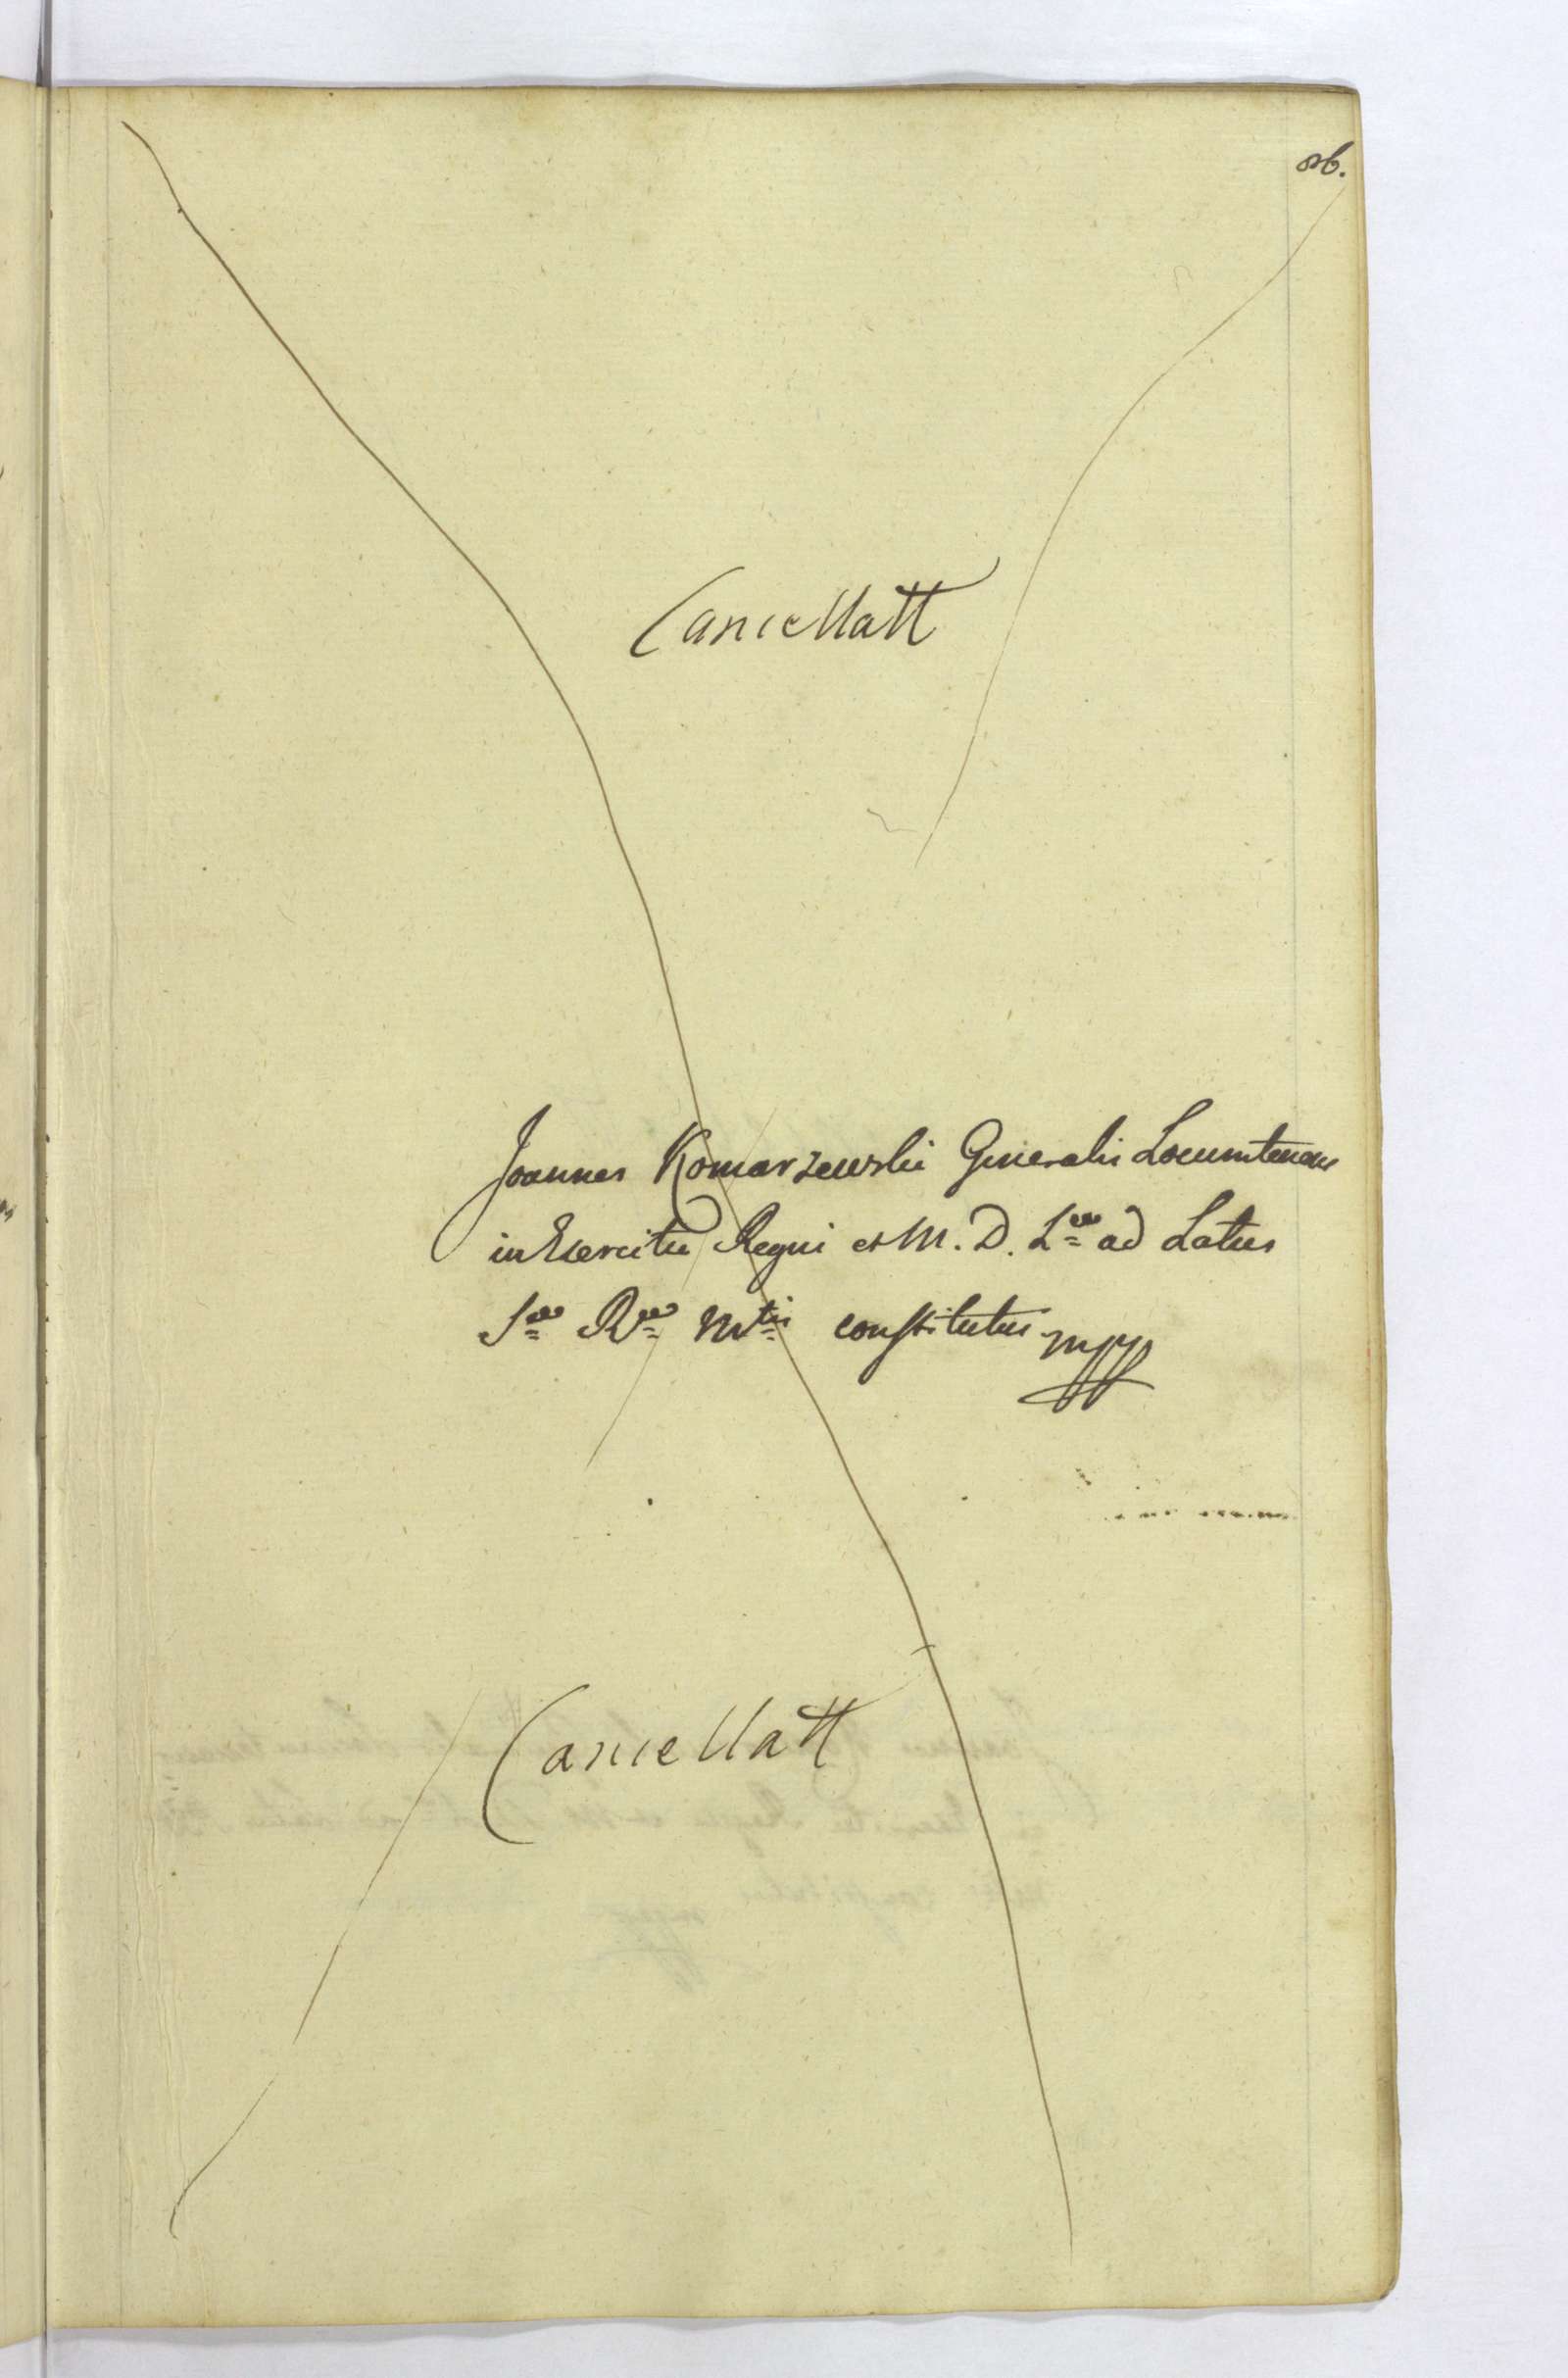 86.
Cancellatt
Joannes Komarzewski Generalis Locumtenens
in Exercitu Regni et M. D. Lae ad Latus
Sae Rae Mtis constitutus mpp
Cancellatt